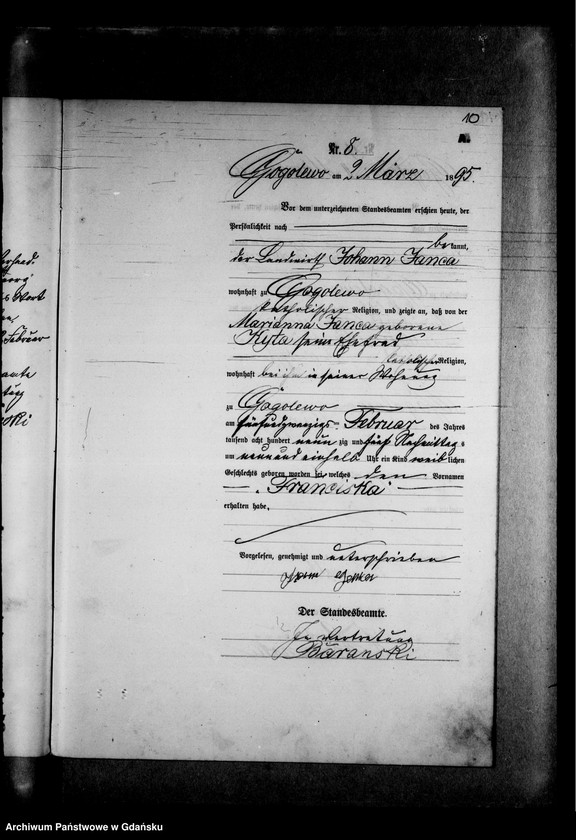 10
A.
Nr. 8.
Gogolewo am 2 März 1895.
Vor dem unterzeichneten Standesbeamten erschien heute, der
Persönlichkeit nach
bekannt,
der Landwirth Johann Janca
wohnhaft zu Gogolewo
katholischer Religion, und zeigte an, daß von der
Marianna Janca geborene
Kyta sein Ehefrad
katholischer Religion,
wohnhaft bei ihm in seiner Wohnung
zu Gogolewo
am fünfundzwanzigsten Februar des Jahres
tausend acht hundert neunzig und fünf Nachmittags
um neun und einhalb Uhr ein Kind weiblichen
Geschlechts geboren worden sei, welches den Vornamen
Franciska
erhalten habe,
Vorgelesen, genehmigt und unterschrieben
Der Standesbeamte.
In Vertretung
Baranski
Februar
Archiwum Państwowe w Gdańsku